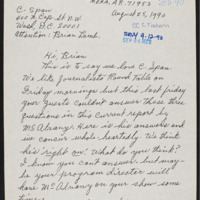 MENA, AR. 71953
August 23, 1990
C-Span
400 N. Cap. St N.W.
Wash, D.C. 20001
Attention: Brian Lamb.
Hi, Brian
This is to say we love C-Span.
We like Journalists Round Table on
Friday mornings but this last Friday
your guests couldn't answer those three
questions in this current report by
McAlvany. Here is his answers and
we concur whole-heartedly. We think
he's right on! What do you think?
I know you cant answer, but may-
be your program director will
have Mc Alvany on your show some